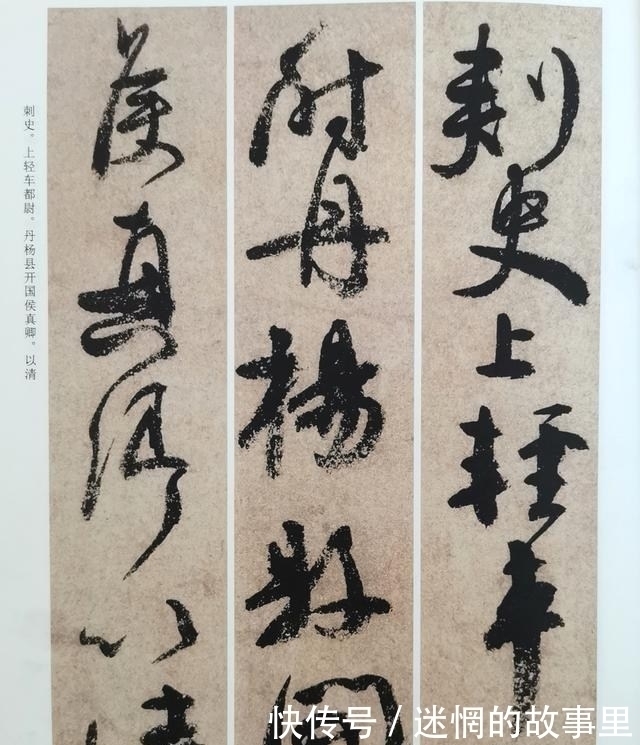 刺史上輕車
尉丹楊縣國
侯真卿以清
刺史。上轻车都尉。丹杨县开国侯真卿。以清
快传号 / 迷惘的故事里